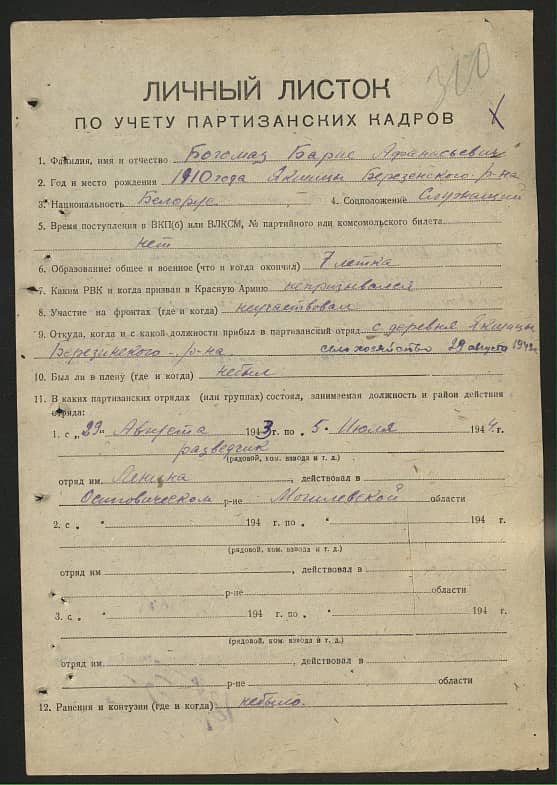 310
ЛИЧНЫЙ ЛИСТОК
ПО УЧЕТУ ПАРТИЗАНСКИХ КАДРОВ
1. Фамилия, имя и отчество Богомаз Барис Афанасьевич
2. Год и место рождения 1910 года Якшицы Березенского р-на
3. Национальность Белорус, 4. Соцположение Служащий
5. Время поступления в ВКП(б) или ВЛКСМ, № партийного или комсомольского билета
нет
6. Образование: общее и военное (что и когда окончил) 7 летка
7. Каким РВК и когда призван в Красную Армию непризывался
8. Участие на фронтах (где и когда) неучаствовал
9. Откуда, когда и с какой должности прибыл в партизанский отряд с деревня Якшицы
Березинского р-на сельхозяйство 29 августа 1943г.
10. Был ли в плену (где и когда) небыл
11. В каких партизанских отрядах (или группах) состоял, занимаемая должность и район действия
отряда:
1. с „29" Августа 1943 г. по „5" Июля 1944 г.
разведчик
(рядовой, ком. взвода и т. д.)
отряд им. Ленина, действовал в
Осиповическом р-не Могилевской области
2. с „ " 194 г. по „ " 194 г.
(рядовой, ком. взвода и т. д.)
отряд им, действовал в
р-не области
3. с „ " 194 г. по „ " 194 г.
(рядовой, ком. взвода и т. д.)
отряд им, действовал в
р-не области
12. Ранения и контузии (где и когда) небыло.